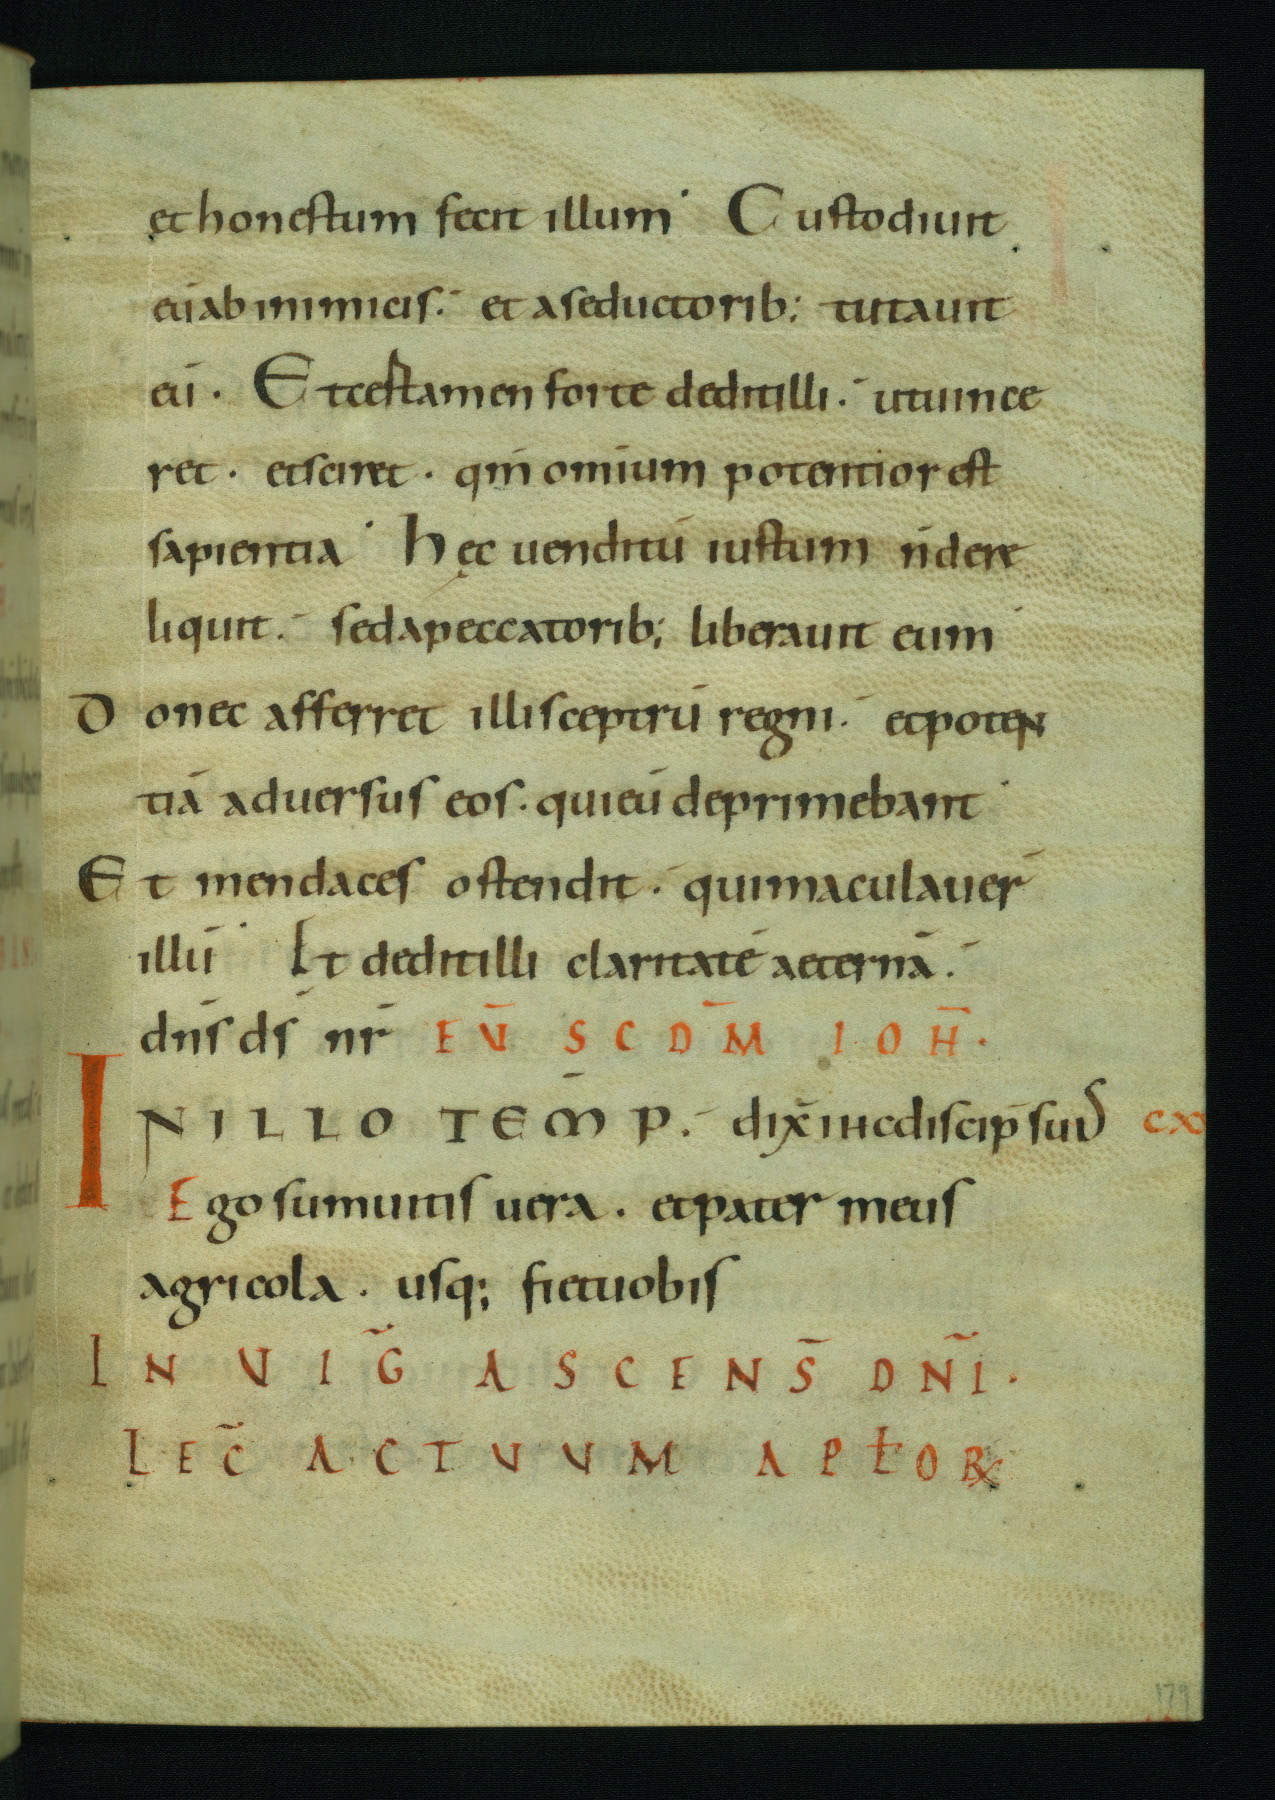 et honestum fecit illum· Custodiuit
eū ab inimicis. et a seductorib; tutauit
eū. Et certamen forte dedit illi. ut uince
ret. et sciret. qm̄ omīum potentior est
sapientia· hęc uenditū iustum ñ dere
liquit. sed a peccatorib; liberauit eum·
Donec afferret illi sceptrū regni. et poten
tiā aduersus eos. qui eū deprimebant·
Et mendaces ostendit. qui maculauer̄
illū· Et dedit illi claritatē aeternā.
dn̄s ds̄ nr̄ EV̄ SCDM̄ IOH̄.
IN ILLO TEM̄P. dix̄ ihc discip̄ suis CX
Ego sum uitis uera. et pater meus
agricola. usq; fiet uobis
IN VIḠ ASCENS̄ DN̄I.
LEC̄ ACTVVM APŁOR
179